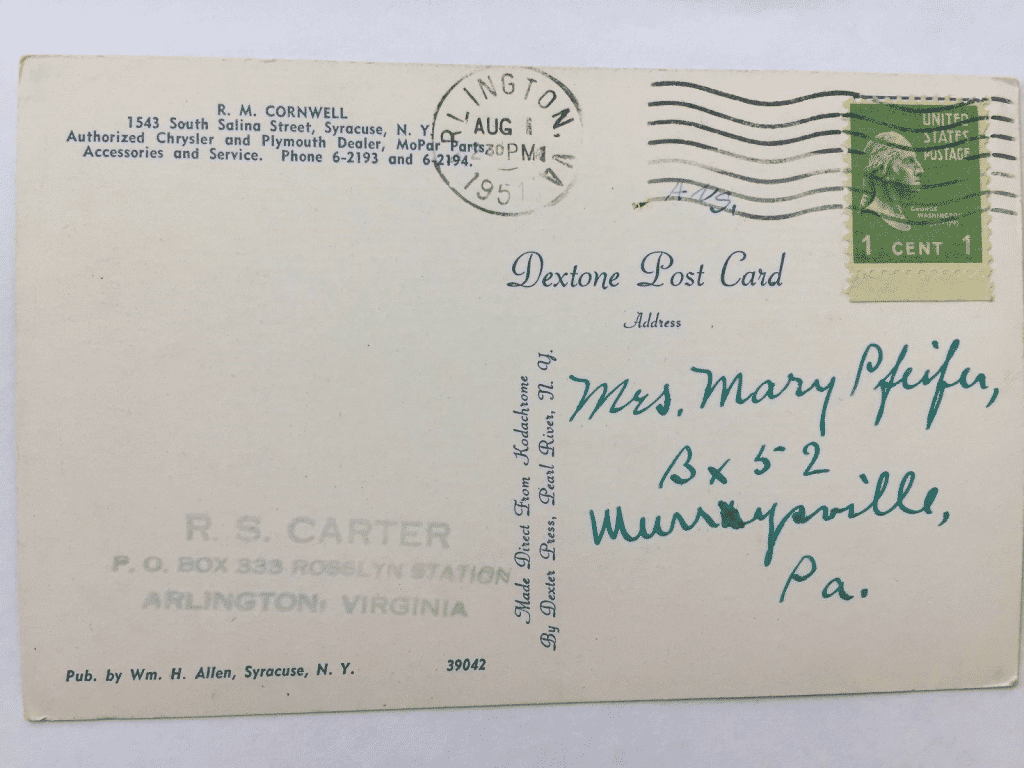 R. M. CORNWELL
1543 South Salina Street, Syracuse, N. Y.
Authorized Chrysler and Plymouth Dealer, MoPar Parts,
Accessories and Service. Phone 6-2193 and 6-2194.
ARLINGTON, VA
AUG 1
2 30 PM
1951
UNITED
STATES
POSTAGE
GEORGE
WASHINGTON
1 CENT 1
ANS.
Dextone Post Card
Address
Made Direct From Kodachrome
By Dexter Press, Pearl River, N. Y.
Mrs. Mary Pfeifer,
Bx 52
Murrysville,
Pa.
R. S. CARTER
P. O. BOX 333 ROSSLYN STATION
ARLINGTON, VIRGINIA
Pub. by Wm. H. Allen, Syracuse, N. Y.
39042